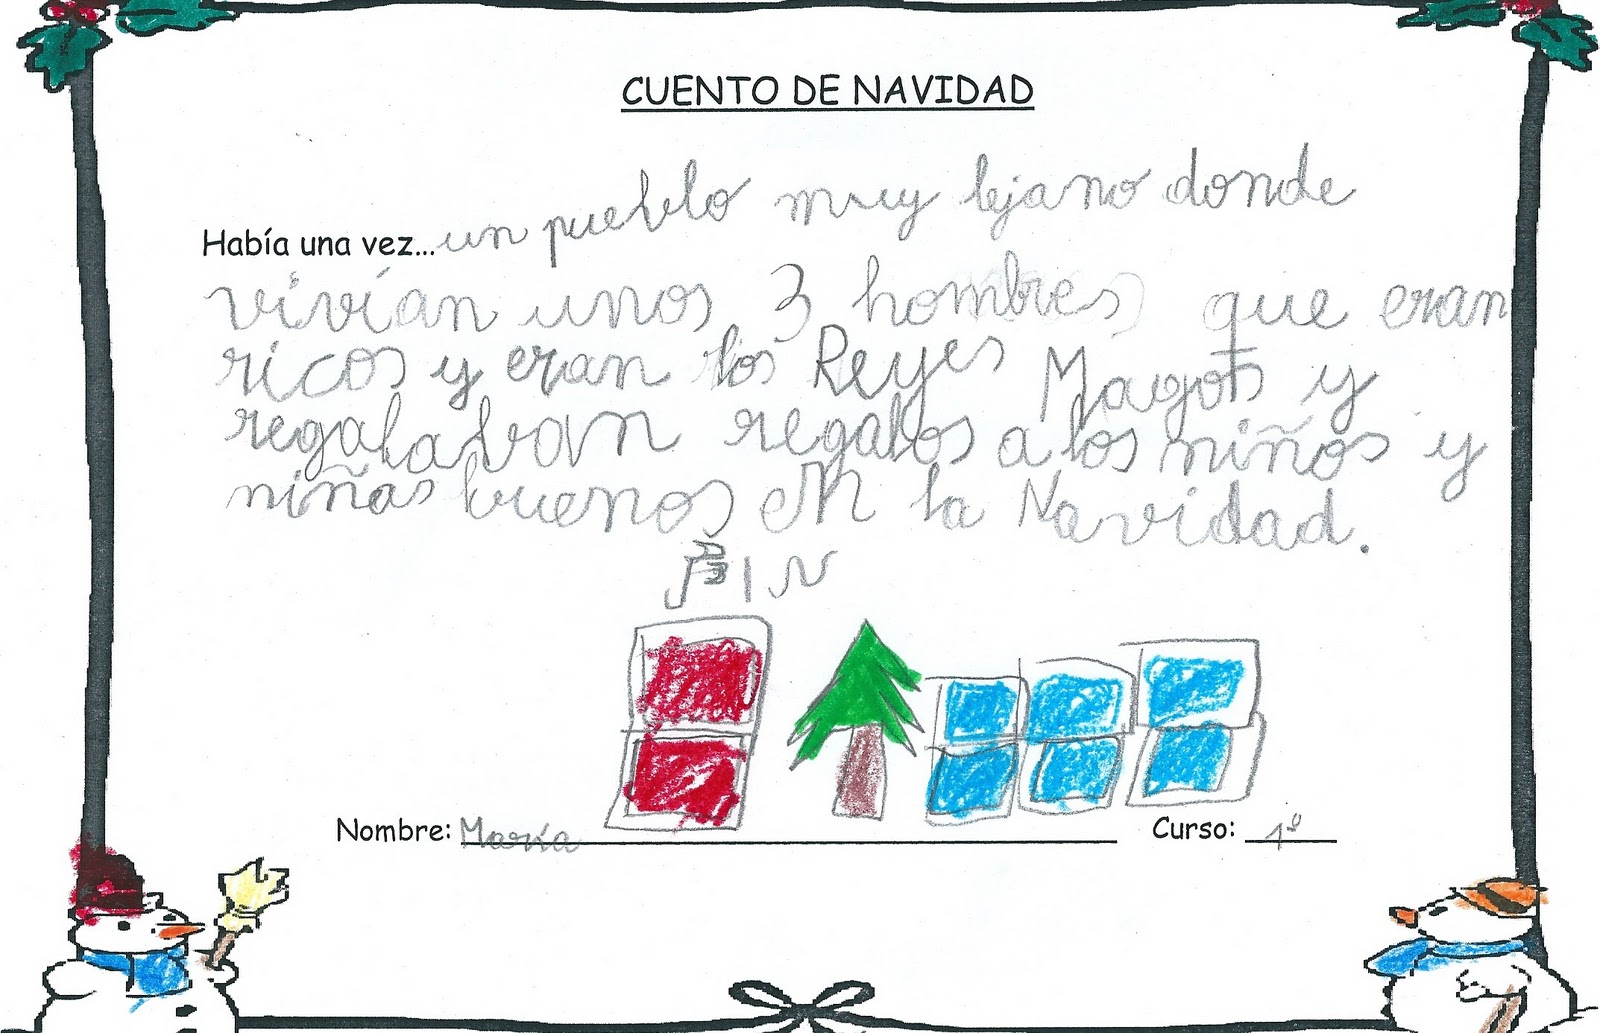 CUENTO DE NAVIDAD
Había una vez... un pueblo muy lejano donde
vivían unos 3 hombres que eran
ricos y eran los Reyes Magos y
regalaban regalos a los niños y
niñas buenos en la Navidad.
FIN
Nombre: María Curso: 1º